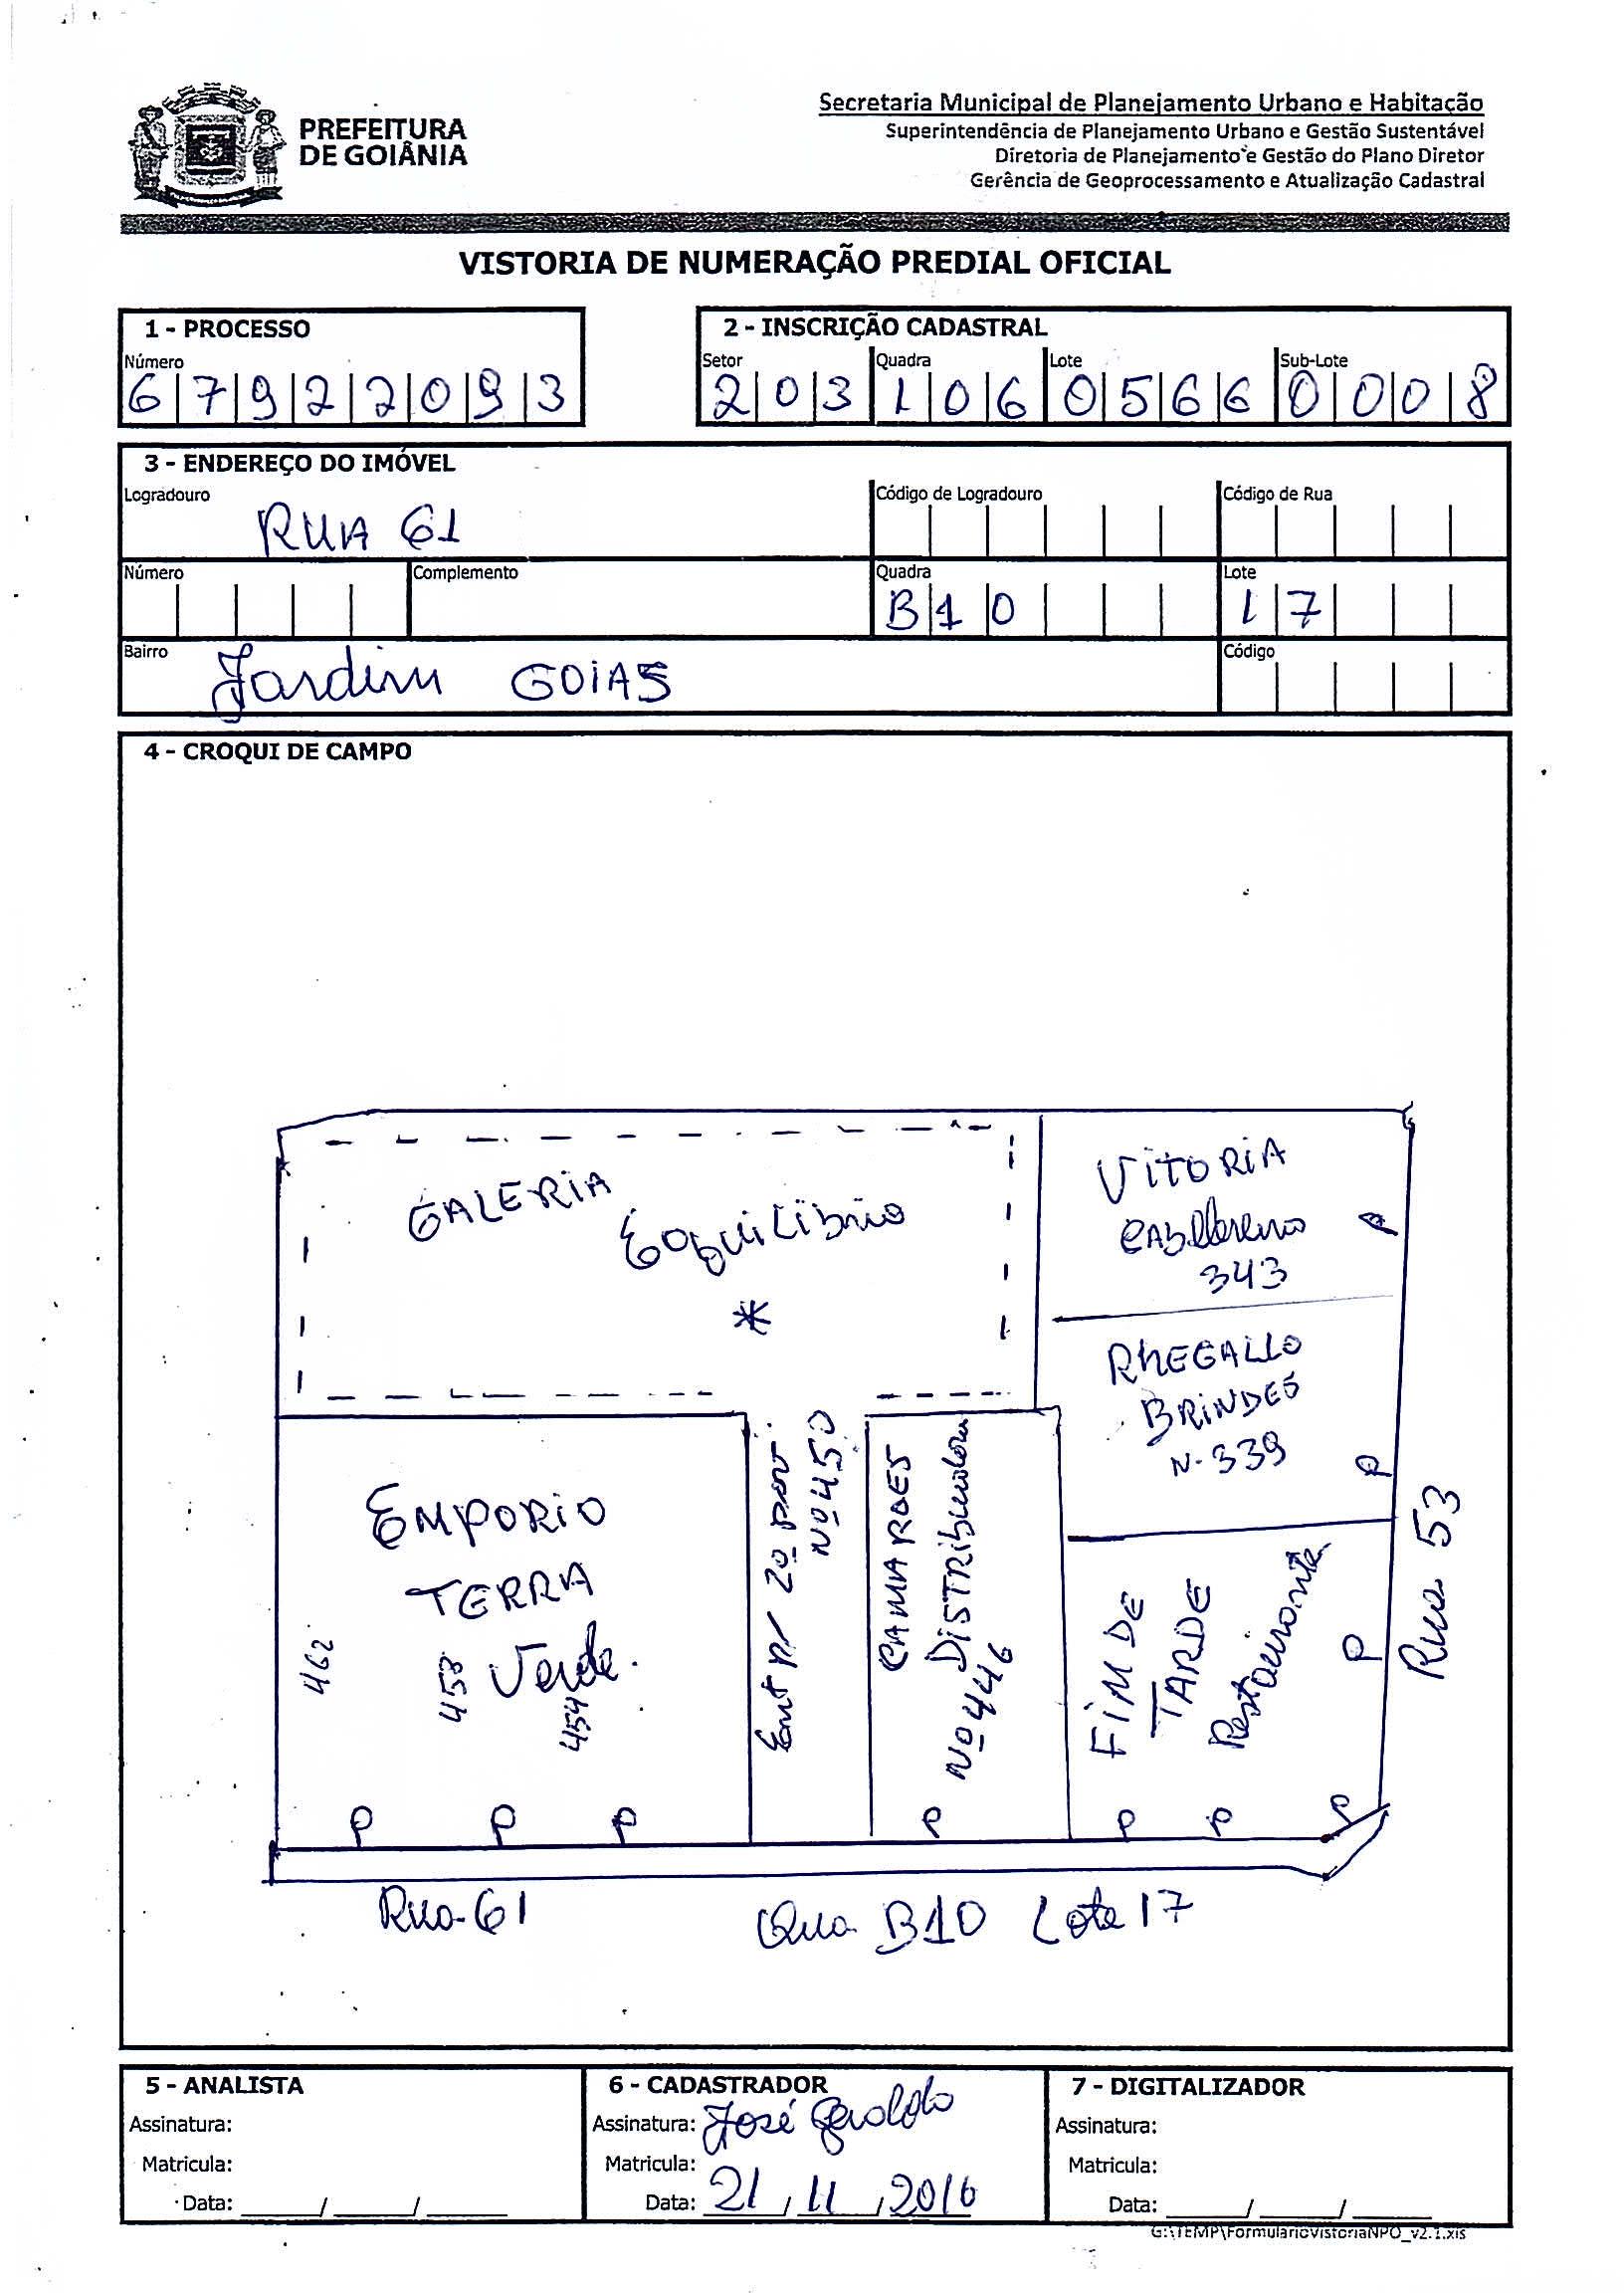 PREFEITURA
DE GOIÂNIA
Secretaria Municipal de Planejamento Urbano e Habitação
Superintendência de Planejamento Urbano e Gestão Sustentável
Diretoria de Planejamento e Gestão do Plano Diretor
Gerência de Geoprocessamento e Atualização Cadastral
VISTORIA DE NUMERAÇÃO PREDIAL OFICIAL
1 - PROCESSO
Número
6 7 9 2 2 0 9 3
2 - INSCRIÇÃO CADASTRAL
Setor Quadra Lote Sub-Lote
2 0 3 1 0 6 0 5 6 6 0 0 0 8
3 - ENDEREÇO DO IMÓVEL
Logradouro Código de Logradouro Código de Rua
RUA 61
Número Complemento Quadra Lote
B 1 0 1 7
Bairro Código
Jardim GOIAS
4 - CROQUI DE CAMPO
GALERIA
VITORIA
343
*
RHEGALLO
BRINDES
N. 339
P
EMPORIO
TERRA
Verde.
462
458
454
Ent p/ 2º pav.
Nº 450
CAMAROES
DISTRIBuidora
Nº 446
FIM DE
TARDE
Restaurante
P
Rua 53
P P P P P P P
Rua 61
Qua B10 Lote 17
5 - ANALISTA
Assinatura:
Matricula:
Data: / /
6 - CADASTRADOR
Assinatura: José Geraldo
Matricula:
Data: 21 / 11 / 2016
7 - DIGITALIZADOR
Assinatura:
Matricula:
Data: / /
G:\TEMP\FormularioVistoriaNPO_v2.1.xls